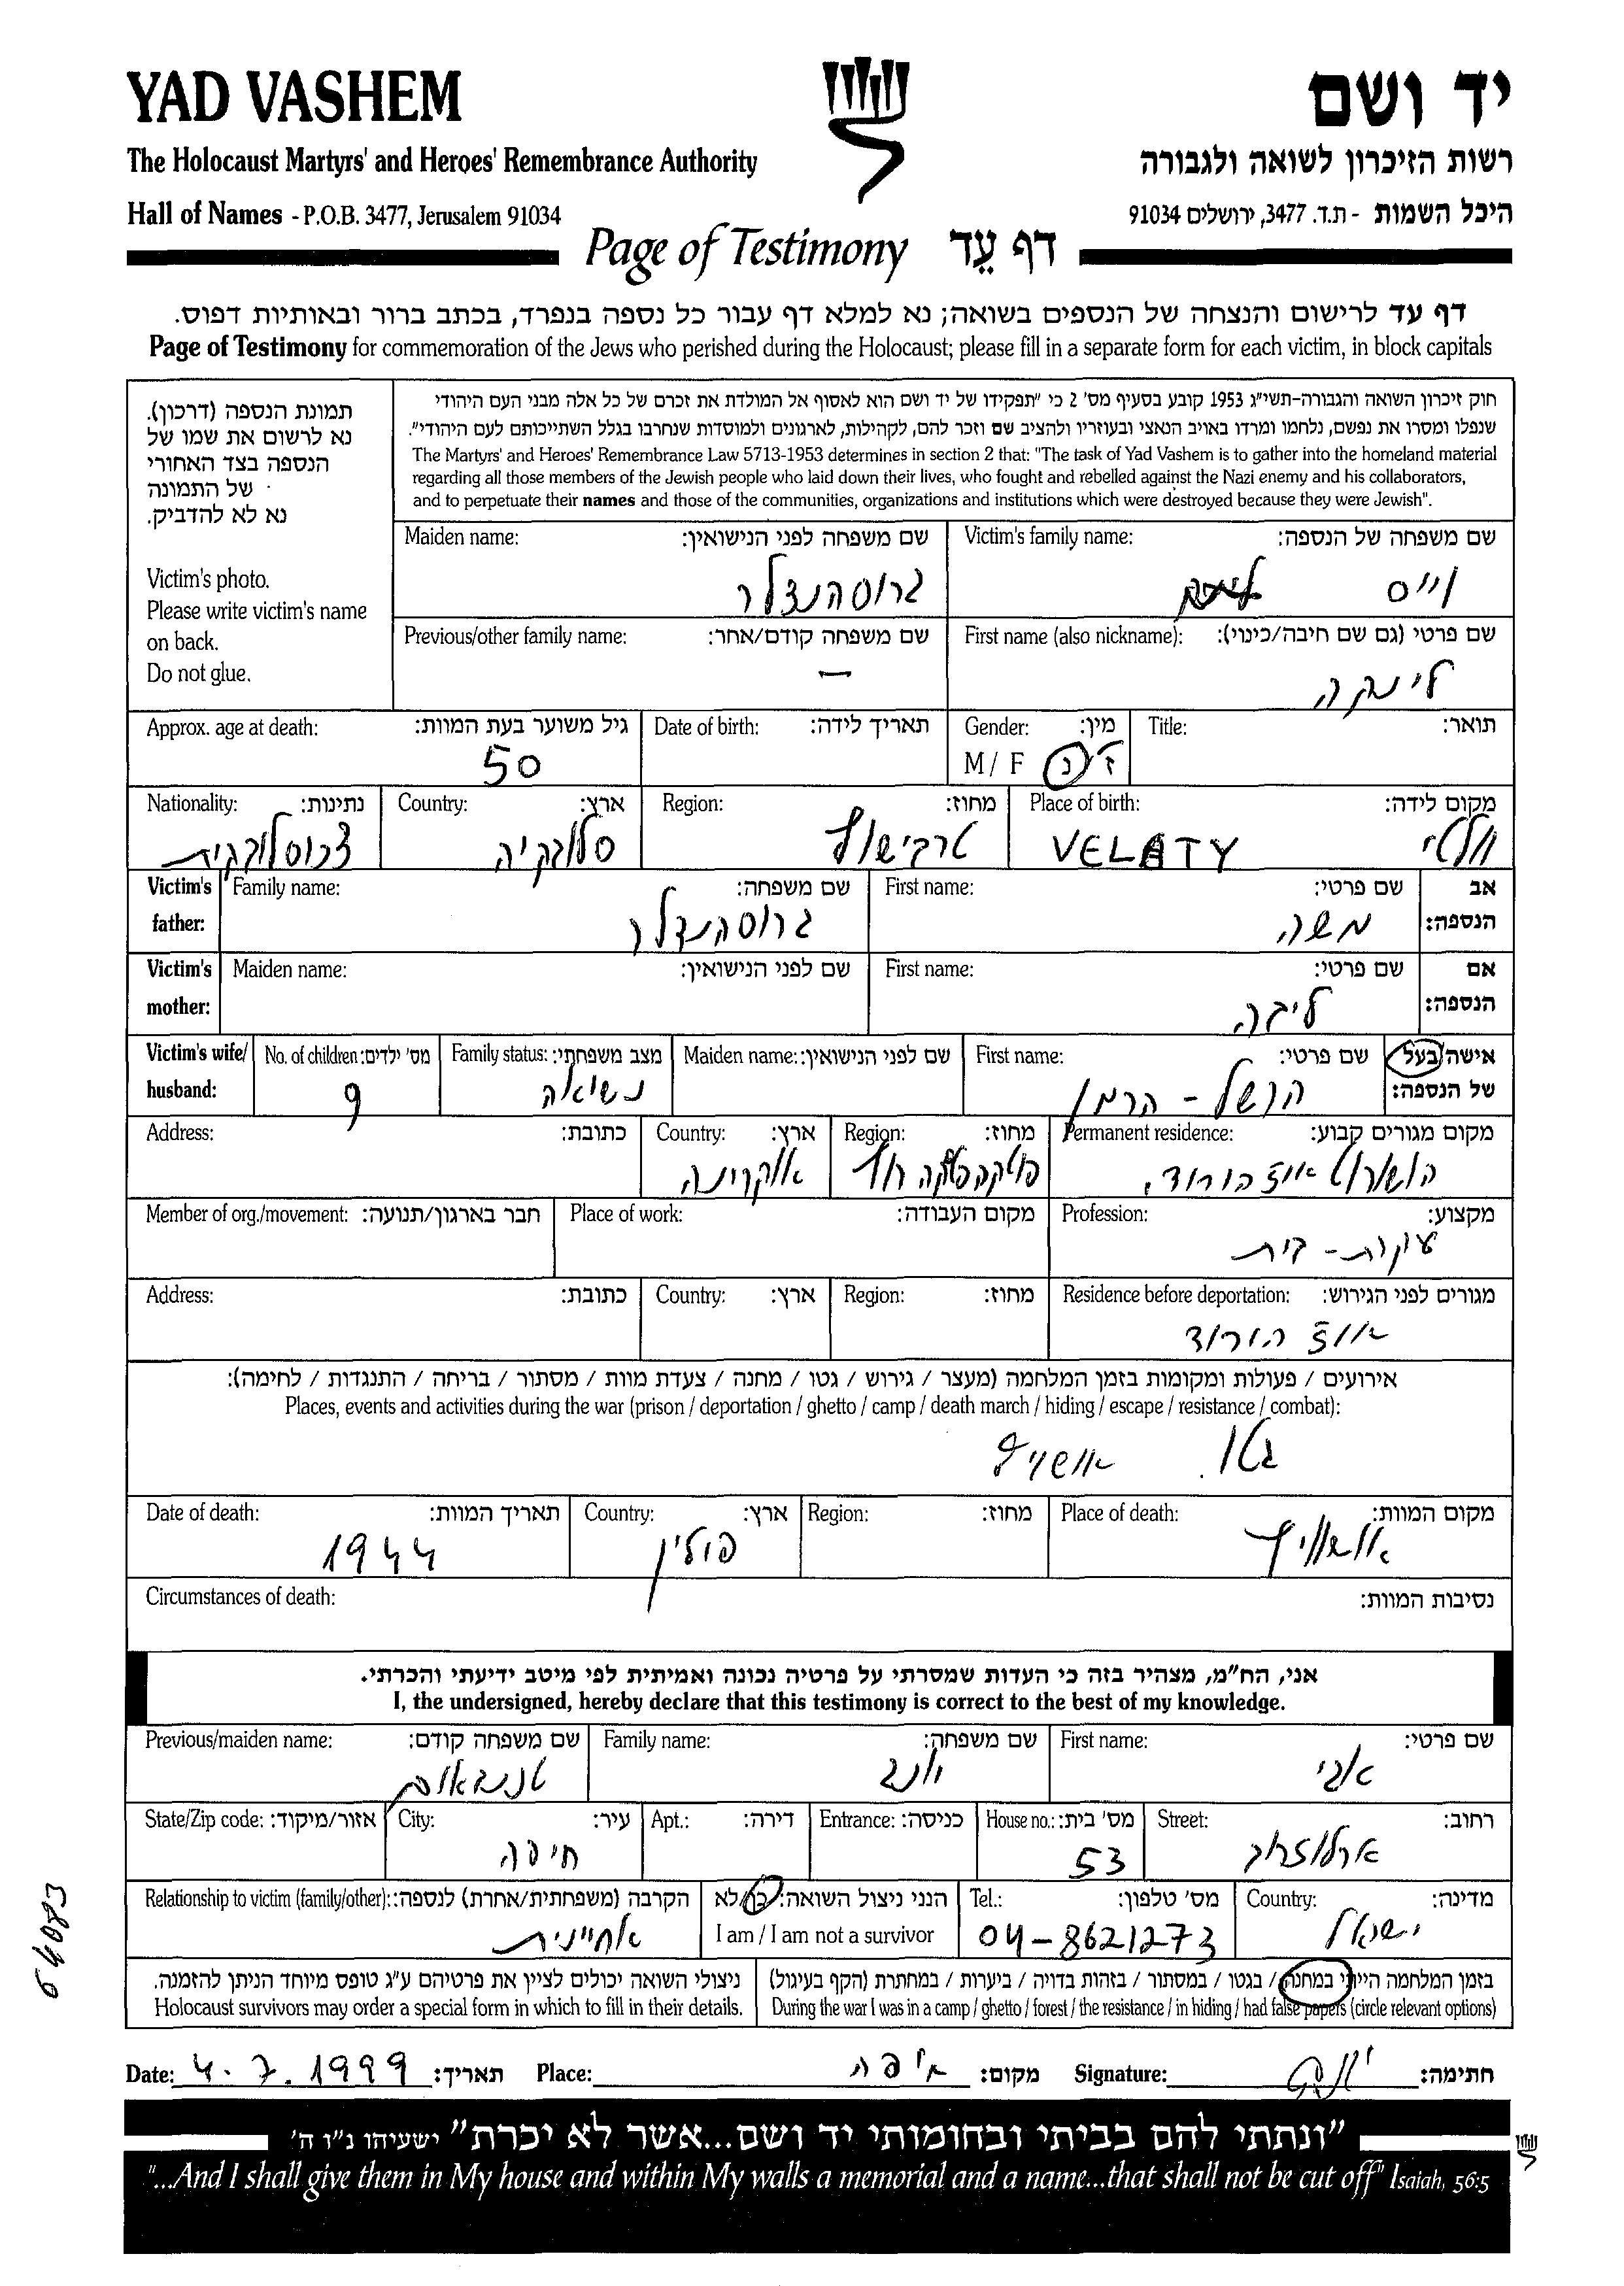 YAD VASHEM
יד ושם
The Holocaust Martyrs' and Heroes' Remembrance Authority
רשות הזיכרון לשואה ולגבורה
Hall of Names - P.O.B. 3477, Jerusalem 91034
היכל השמות - ת.ד. 3477, ירושלים 91034
Page of Testimony דף עֵד
דף עד לרישום והנצחה של הנספים בשואה; נא למלא דף עבור כל נספה בנפרד, בכתב ברור ובאותיות דפוס.
Page of Testimony for commemoration of the Jews who perished during the Holocaust; please fill in a separate form for each victim, in block capitals
תמונת הנספה (דרכון).
נא לרשום את שמו של
הנספה בצד האחורי
של התמונה
נא לא להדביק.
Victim's photo.
Please write victim's name
on back.
Do not glue.
חוק זיכרון השואה והגבורה-תשי"ג 1953 קובע בסעיף מס' 2 כי "תפקידו של יד ושם הוא לאסוף אל המולדת את זכרם של כל אלה מבני העם היהודי
שנפלו ומסרו את נפשם, נלחמו ומרדו באויב הנאצי ובעוזריו ולהציב שם וזכר להם, לקהילות, לארגונים ולמוסדות שנחרבו בגלל השתייכותם לעם היהודי".
The Martyrs' and Heroes' Remembrance Law 5713-1953 determines in section 2 that: "The task of Yad Vashem is to gather into the homeland material
regarding all those members of the Jewish people who laid down their lives, who fought and rebelled against the Nazi enemy and his collaborators,
and to perpetuate their names and those of the communities, organizations and institutions which were destroyed because they were Jewish".
Victim's family name: שם משפחה של הנספה:
וייס
Maiden name: שם משפחה לפני הנישואין:
גרוסהנדלר
First name (also nickname): שם פרטי (גם שם חיבה/כינוי):
לינקה
Previous/other family name: שם משפחה קודם/אחר:
—
Title: תואר:
Gender: מין:
M / F ז / נ
Date of birth: תאריך לידה:
Approx. age at death: גיל משוער בעת המוות:
50
Place of birth: מקום לידה:
VELATY ולטי
Region: מחוז:
טרבישוף
Country: ארץ:
סלובקיה
Nationality: נתינות:
צכוסלובקית
Victim's father: אב הנספה:
First name: שם פרטי:
משה
Family name: שם משפחה:
גרוסהנדלר
Victim's mother: אם הנספה:
First name: שם פרטי:
ליבה
Maiden name: שם לפני הנישואין:
Victim's wife/ husband: אישה/בעל של הנספה:
First name: שם פרטי:
הרשל - הרמן
Maiden name: שם לפני הנישואין:
Family status: מצב משפחתי:
נשואה
No. of children: מס' ילדים:
9
Permanent residence: מקום מגורים קבוע:
אוז הורוד
Region: מחוז:
Country: ארץ:
אוקרינה
Address: כתובת:
Profession: מקצוע:
עקרת-בית
Place of work: מקום העבודה:
Member of org./movement: חבר בארגון/תנועה:
Residence before deportation: מגורים לפני הגירוש:
אוז הורוד
Region: מחוז:
Country: ארץ:
Address: כתובת:
אירועים / פעולות ומקומות בזמן המלחמה (מעצר / גירוש / גטו / מחנה / צעדת מוות / מסתור / בריחה / התנגדות / לחימה):
Places, events and activities during the war (prison / deportation / ghetto / camp / death march / hiding / escape / resistance / combat):
גטו. אושויץ
Place of death: מקום המוות:
אושוויץ
Region: מחוז:
Country: ארץ:
פולין
Date of death: תאריך המוות:
1944
Circumstances of death: נסיבות המוות:
אני, הח"מ, מצהיר בזה כי העדות שמסרתי על פרטיה נכונה ואמיתית לפי מיטב ידיעתי והכרתי.
I, the undersigned, hereby declare that this testimony is correct to the best of my knowledge.
First name: שם פרטי:
אגי
Family name: שם משפחה:
יונג
Previous/maiden name: שם משפחה קודם:
טננבאום
Street: רחוב:
ארלוזרוב
House no.: מס' בית:
53
Entrance: כניסה:
Apt.: דירה:
City: עיר:
חיפה
State/Zip code: אזור/מיקוד:
Country: מדינה:
ישראל
Tel.: מס' טלפון:
04-8621273
הנני ניצול השואה: כן/לא
I am / I am not a survivor
Relationship to victim (family/other): הקרבה (משפחתית/אחרת) לנספה:
אחיינית
בזמן המלחמה הייתי במחנה / בגטו / במסתור / בזהות בדויה / ביערות / במחתרת (הקף בעיגול)
During the war I was in a camp / ghetto / forest / the resistance / in hiding / had false papers (circle relevant options)
ניצולי השואה יכולים לציין את פרטיהם ע"ג טופס מיוחד הניתן להזמנה.
Holocaust survivors may order a special form in which to fill in their details.
Date: 4.7.1999 תאריך: Place: חיפה מקום: Signature: חתימה:
"ונתתי להם בביתי ובחומותי יד ושם...אשר לא יכרת" ישעיהו נ"ו ה'
"...And I shall give them in My house and within My walls a memorial and a name...that shall not be cut off" Isaiah, 56:5